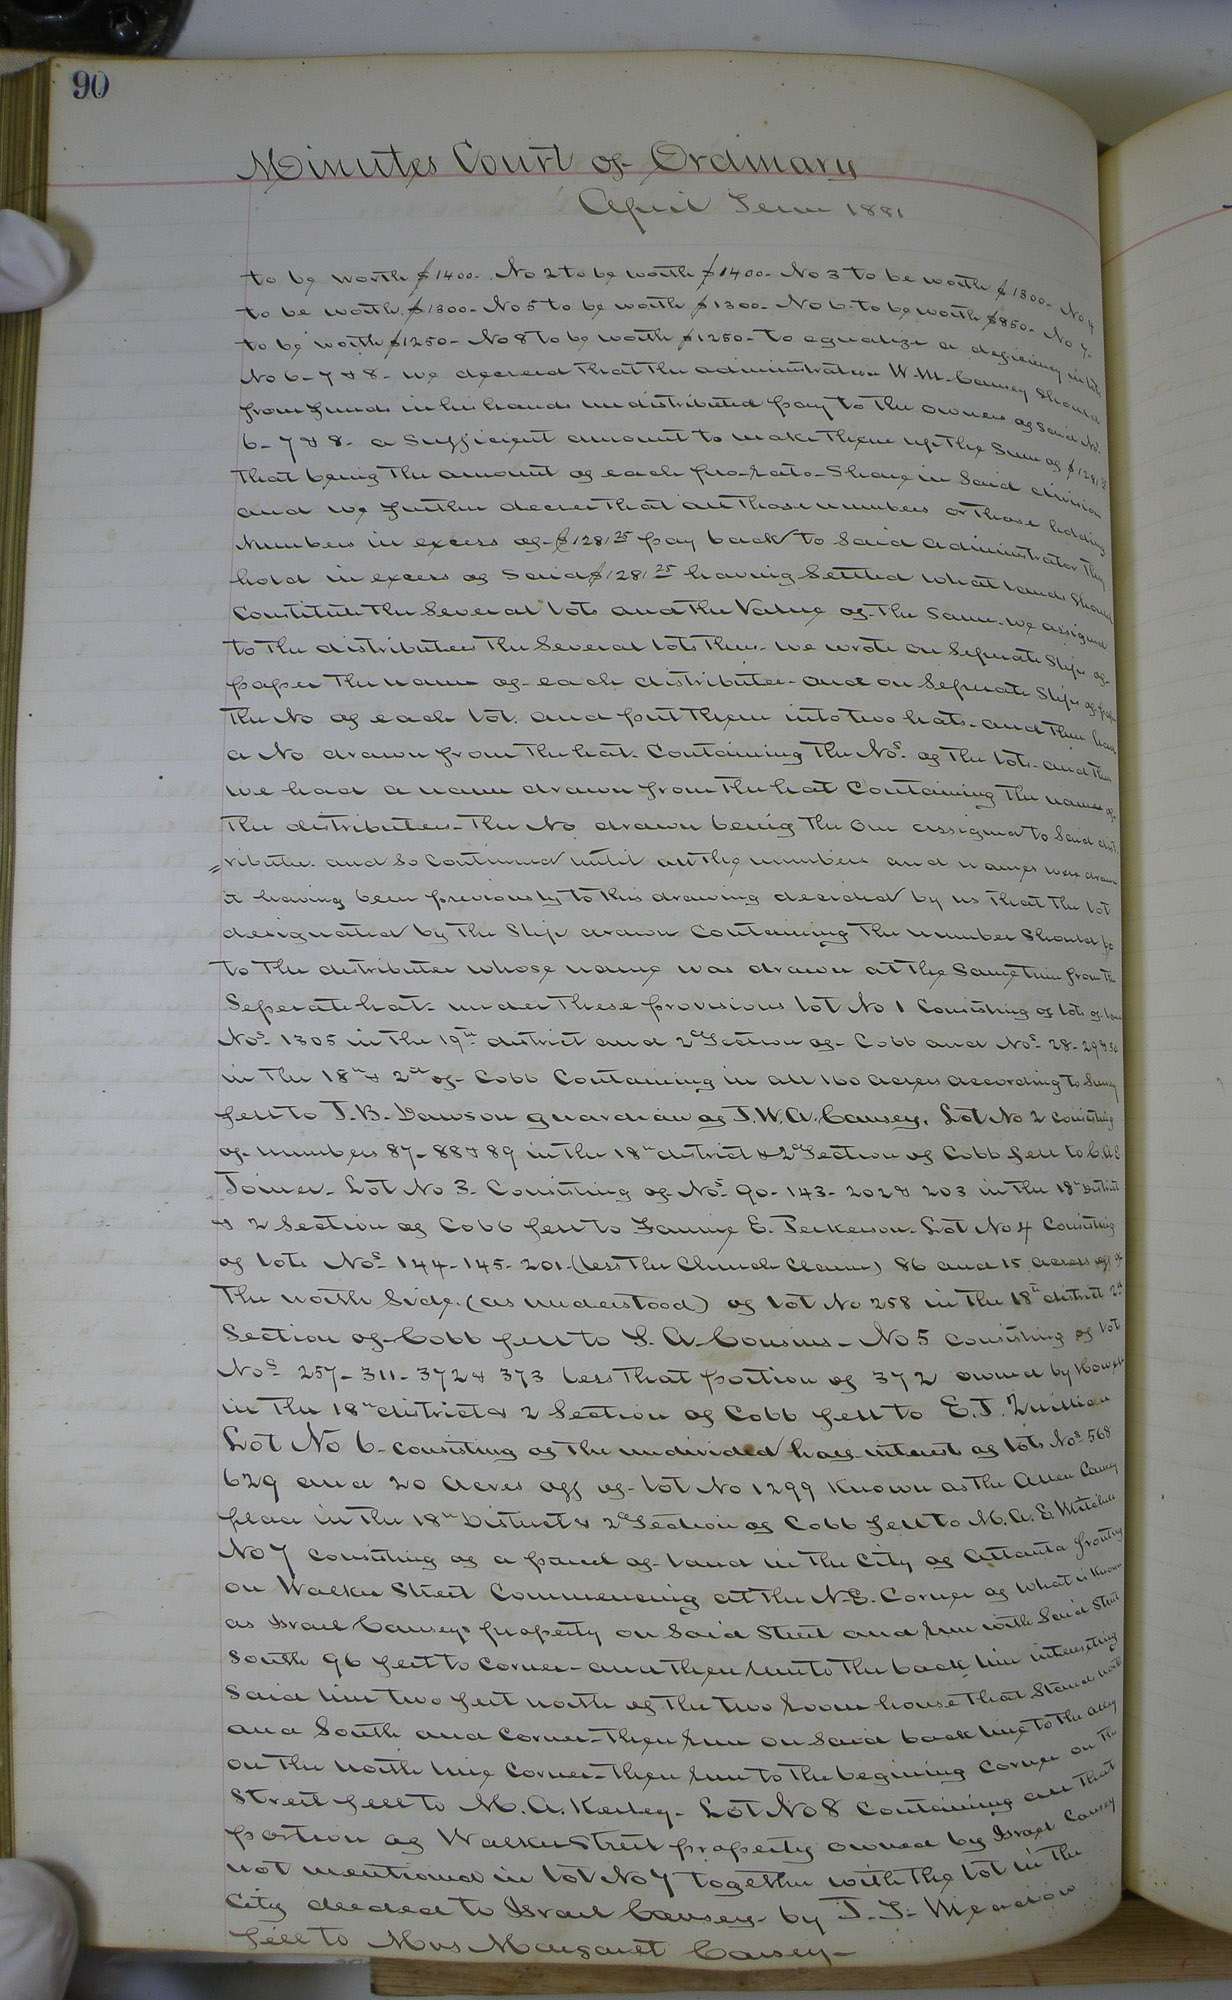 90
Minutes Court of Ordinary
April Term 1881
to be worth $1400- No 2 to be worth $1400- No 3 to be worth $1300- No 4
to be worth $1300- No 5 to be worth $1300- No 6 to be worth $850- No 7-
to be worth $1250- No 8 to be worth $1250- to equalize a deficiency in lots
No 6-7 & 8- we decreed that the administrator W. M. Causey should
from funds in his hands undistributed pay to the owners of said No.
6-7 & 8- a sufficient amount to make them up the Sum of $1281 25
that being the amount of each pro-rato-Share in Said division
and we further decree that all those numbers or those holding
Numbers in excess of $1281 25 pay back to Said administrator they
hold in excess of Said $1281 25 having Settled what lands Should
Constitute the Several lots and the Value of the Same. we assigned
to the distributees the Several lots thus- we wrote on Seperate Slips of-
paper the name of each distributee- and on Seperate Slips of paper
the No of each lot. and put them into two hats- and then had
a No drawn from the hat. Containing the Nos. of the lots- and then
we had a name drawn from the hat Containing the names of-
the distributees- the No drawn being the one assigned to Said dist-
=ributee. and So Continued until all the numbers and names were drawn
it having been previously to this drawing decided by us that the lot
designated by the Slip drawn Containing the number Should go
to the distributee whose name was drawn at the Same time from the
Seperate hat- under these provisions lot No 1 Consisting of lots of land
Nos- 1305 in the 19th district and 2d Section of- Cobb and Nos- 28-29 & 30
in the 18th & 2d of- Cobb Containing in all 160 acres according to Survey
fell to J. B. Dawson guardian of J. W. A. Causey. Lot No 2 consisting
of- numbers 87-88 & 89 in the 18th district & 2d Section of Cobb fell to C. A. E
Joiner- Lot No 3- Consisting of- Nos- 90-143-202 & 203 in the 18th District
& 2 Section of Cobb fell to Fannie E. Perkerson- Lot No 4 Consisting
of lots Nos- 144-145-201-(less the Church Claim) 86 and 15 acres off of
the north Side. (as understood) of lot No 258 in the 18th district 2d
Section of- Cobb fell to S. A. Cousins- No 5 consisting of lots
Nos- 257-311-372 & 373 less that portion of 372 owned by Howell
in the 18th district & 2 Section of Cobb fell to E. J. Quillian
Lot No 6- consisting of the undivided half interest of lots Nos- 568
629 and 20 Acres off of- lot No 1299 Known as the Allen Causey
place in the 18th District & 2d Section of Cobb fell to M. A. E Mitchell
No 7 consisting of a parcel of- land in the City of Atlanta fronting
on Walker Street Commencing at the N.E. Corner of What is Known
as Israel Causeys property on Said Street and run with Said Street
South 96 feet to corner- and then run to the back line intersecting
Said line two feet north of the two room house that Stands north
and South and corner- then run on Said back line to the alley
on the north line corner- then run to the begining Corner on the
Street fell to M. A. Kerley- Lot No 8 containing all that
portion of Walker Street property owned by Israel Causey
not mentioned in lot No 7 together with the lot in the
City deeded to Israel Causey- by J. S. Meadow
fell to Mrs Margaret Causey-